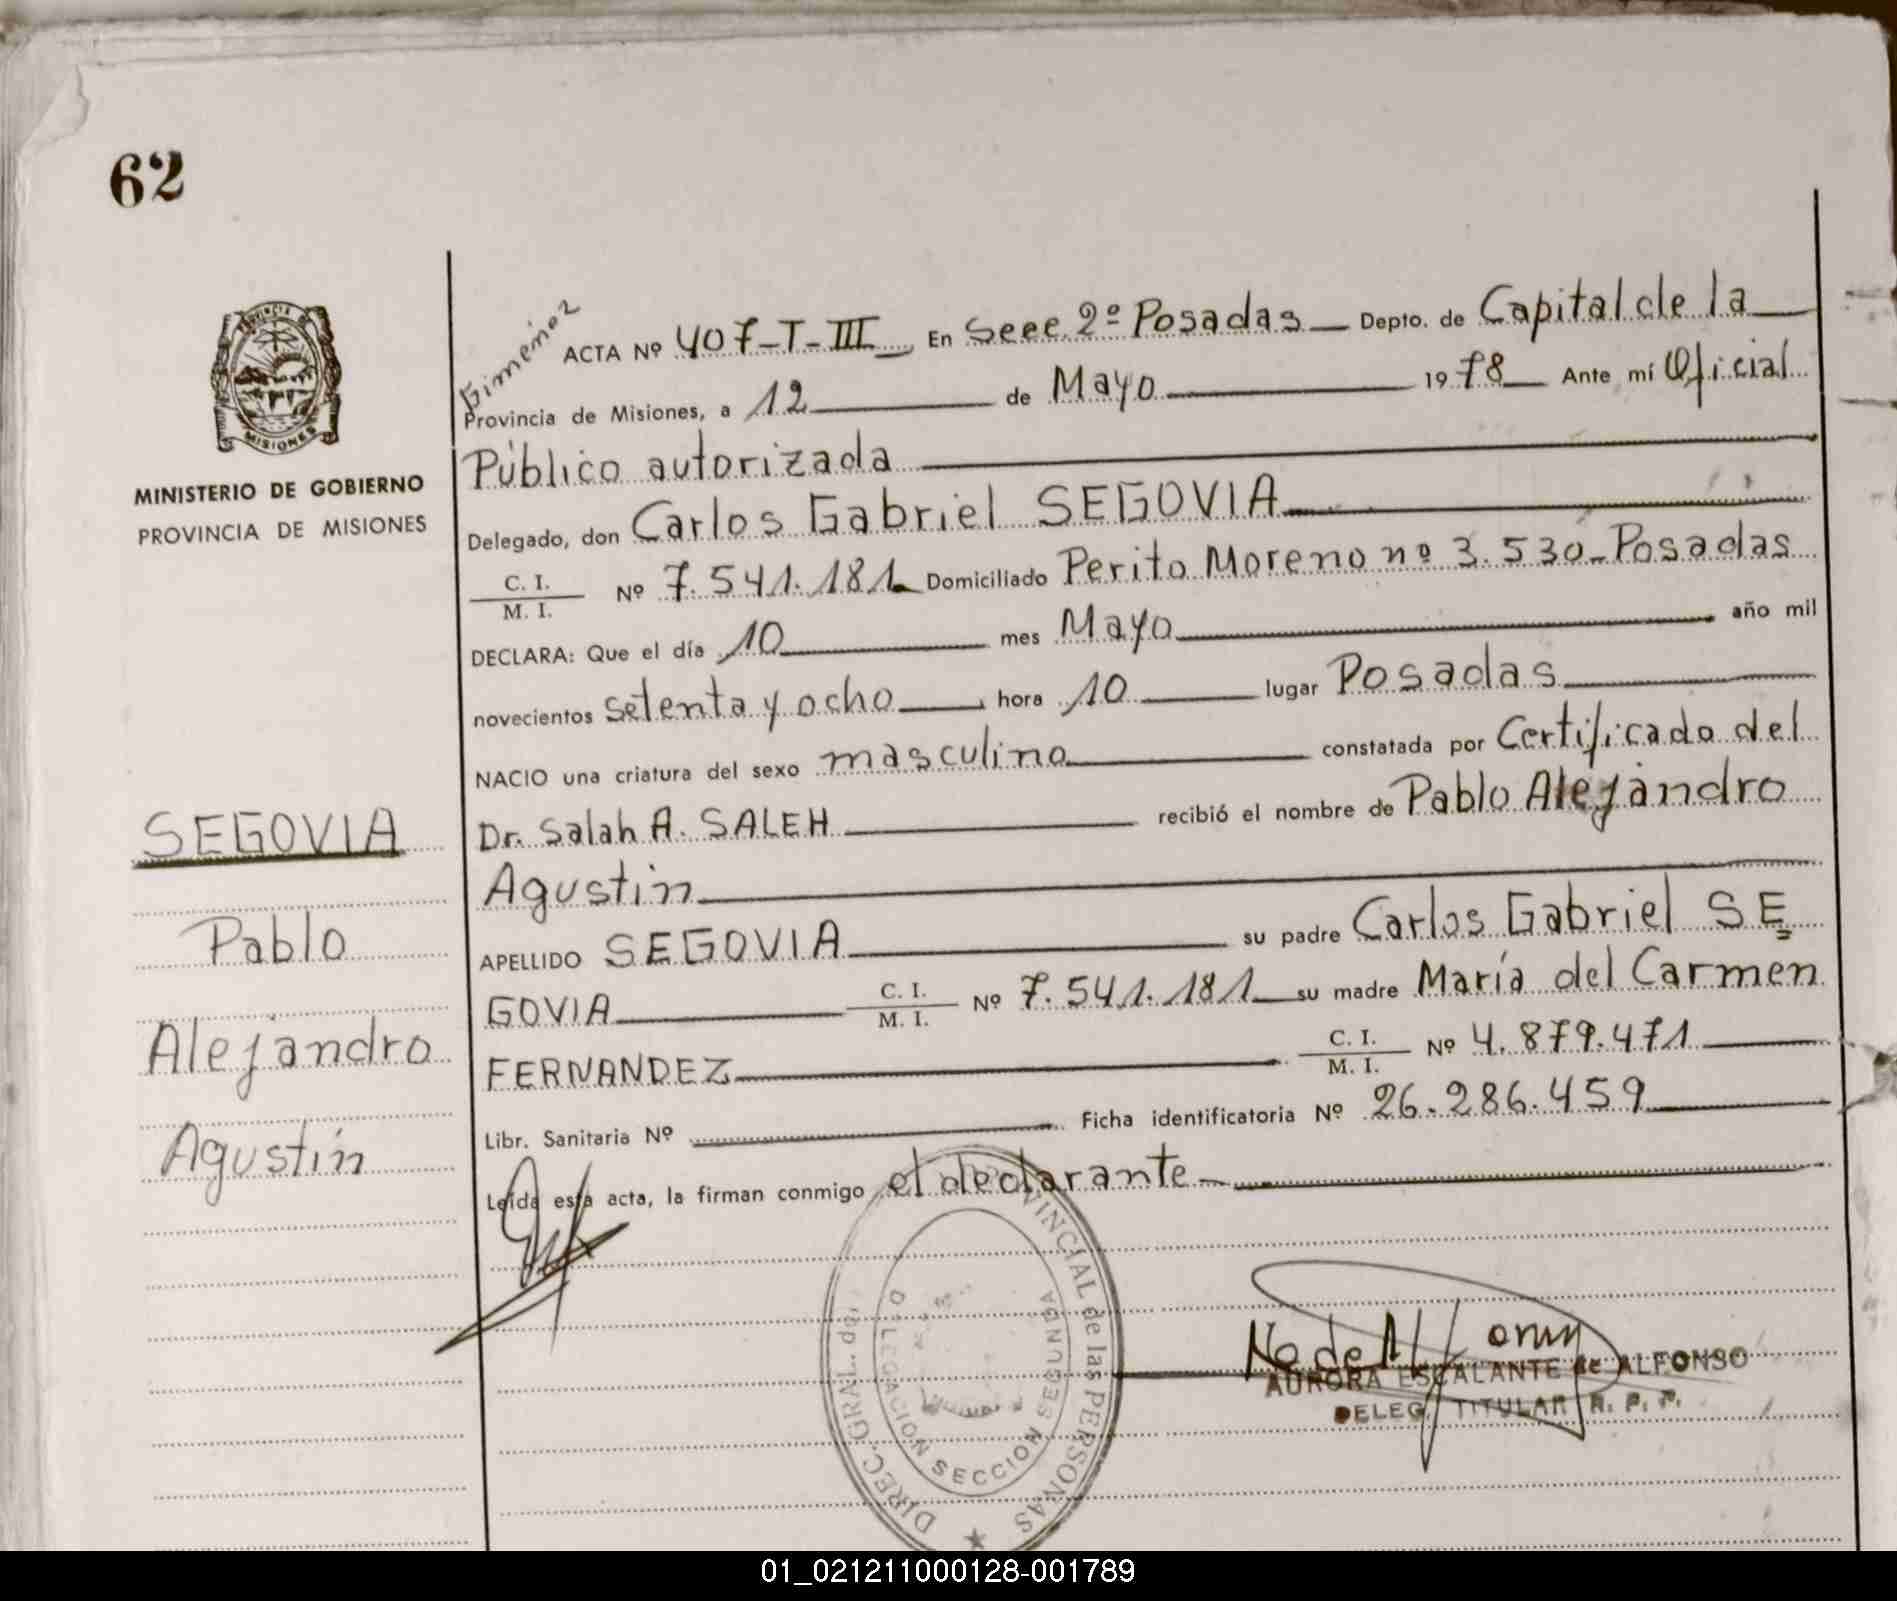 62
Gimenez
ACTA Nº 407-T-III En Secc. 2º Posadas Depto. de Capital de la
Provincia de Misiones, a 12 de Mayo 1978 Ante mí Oficial
Público autorizada
Delegado, don Carlos Gabriel SEGOVIA
C. I.
M. I.
Nº 7.541.181 Domiciliado Perito Moreno nº 3.530-Posadas
DECLARA: Que el día 10 mes Mayo año mil
novecientos setenta y ocho hora 10 lugar Posadas
NACIO una criatura del sexo masculino constatada por Certificado del
Dr. Salah A. SALEH recibió el nombre de Pablo Alejandro
Agustin
APELLIDO SEGOVIA su padre Carlos Gabriel SE
GOVIA C. I. M. I. Nº 7.541.181 su madre María del Carmen
FERNANDEZ C. I. M. I. Nº 4.879.471
Libr. Sanitaria Nº Ficha identificatoria Nº 26.286.459
Leída esta acta, la firman conmigo el declarante
MISIONES
MINISTERIO DE GOBIERNO
PROVINCIA DE MISIONES
SEGOVIA
Pablo
Alejandro
Agustín
DIREC. GRAL. VINCIAL de las PERSONAS
DELEGACION SECCION SEGUNDA
AURORA ESCALANTE de ALFONSO
DELEG. TITULAR R. P. P.
01_021211000128-001789